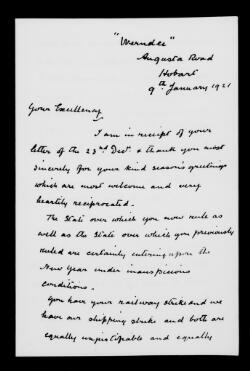 "Werndee"
Augusta Road
Hobart
9th January 1921
Your Excellency
I am in receipt of your
letter of the 23rd Decr & thank you most
sincerely for your kind season's greetings
which are most welcome and very
heartily reciprocated.
The State over which you now rule as
well as the State over which you previously
ruled are certainly entering upon the
New Year under inauspicious
conditions.
You have your railway strike and we
have our shipping strike and both are
equally unjustifiable and equally